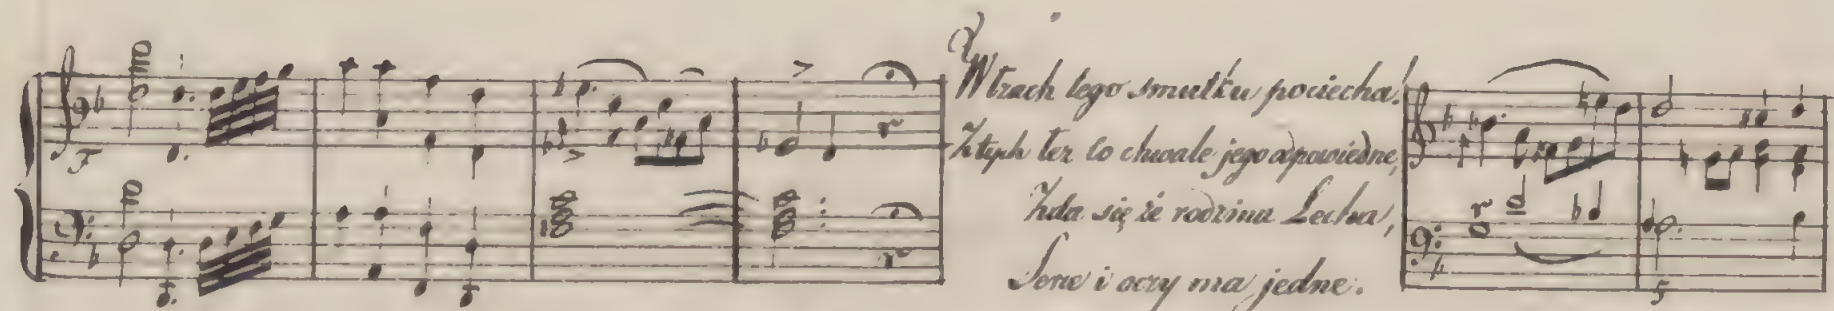 W łzach tego smutku pociecha!
Z tych łez co chwale jego odpowiedne,
Zda się że rodzina Lecha,
Serce i oczy ma jedne.
5